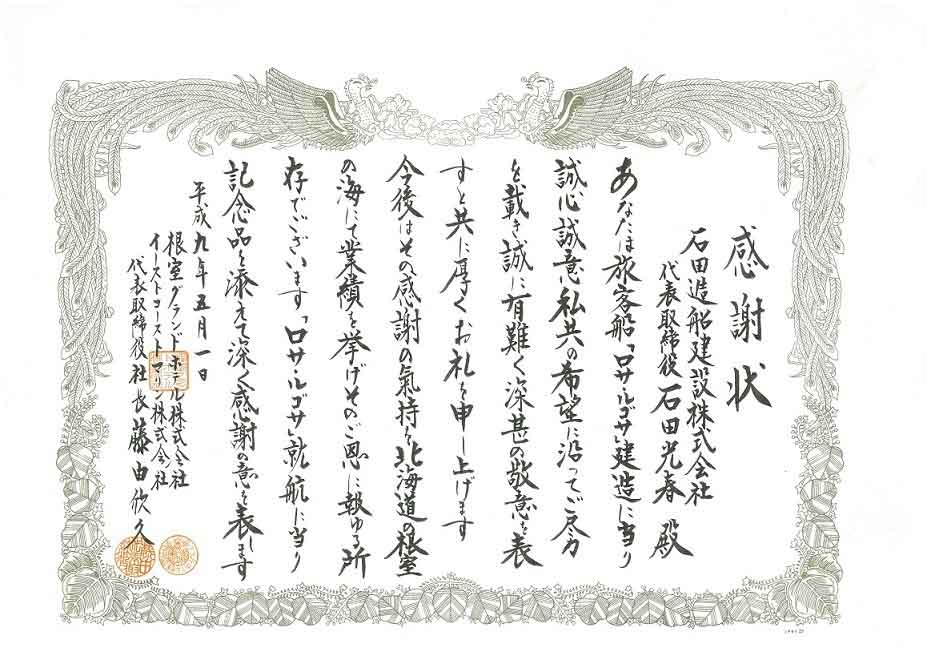 感謝状
石田造船建設株式会社
代表取締役 石田光春 殿
あなたは旅客船「ロサ・ルゴサ」建造に当り
誠心誠意私共の希望に沿ってご尽力
を戴き誠に有難く深甚の敬意を表
すと共に厚くお礼を申し上げます
今後はその感謝の氣持を北海道の根室
の海にて業績を挙げそのご恩に報ゆる所
存でございます「ロサ・ルゴサ」就航に当り
記念品を添えて深く感謝の意を表します
平成九年五月一日
根室グランドホテル株式会社
イーストコーストマリン株式会社
代表取締役社長 藤由欣久